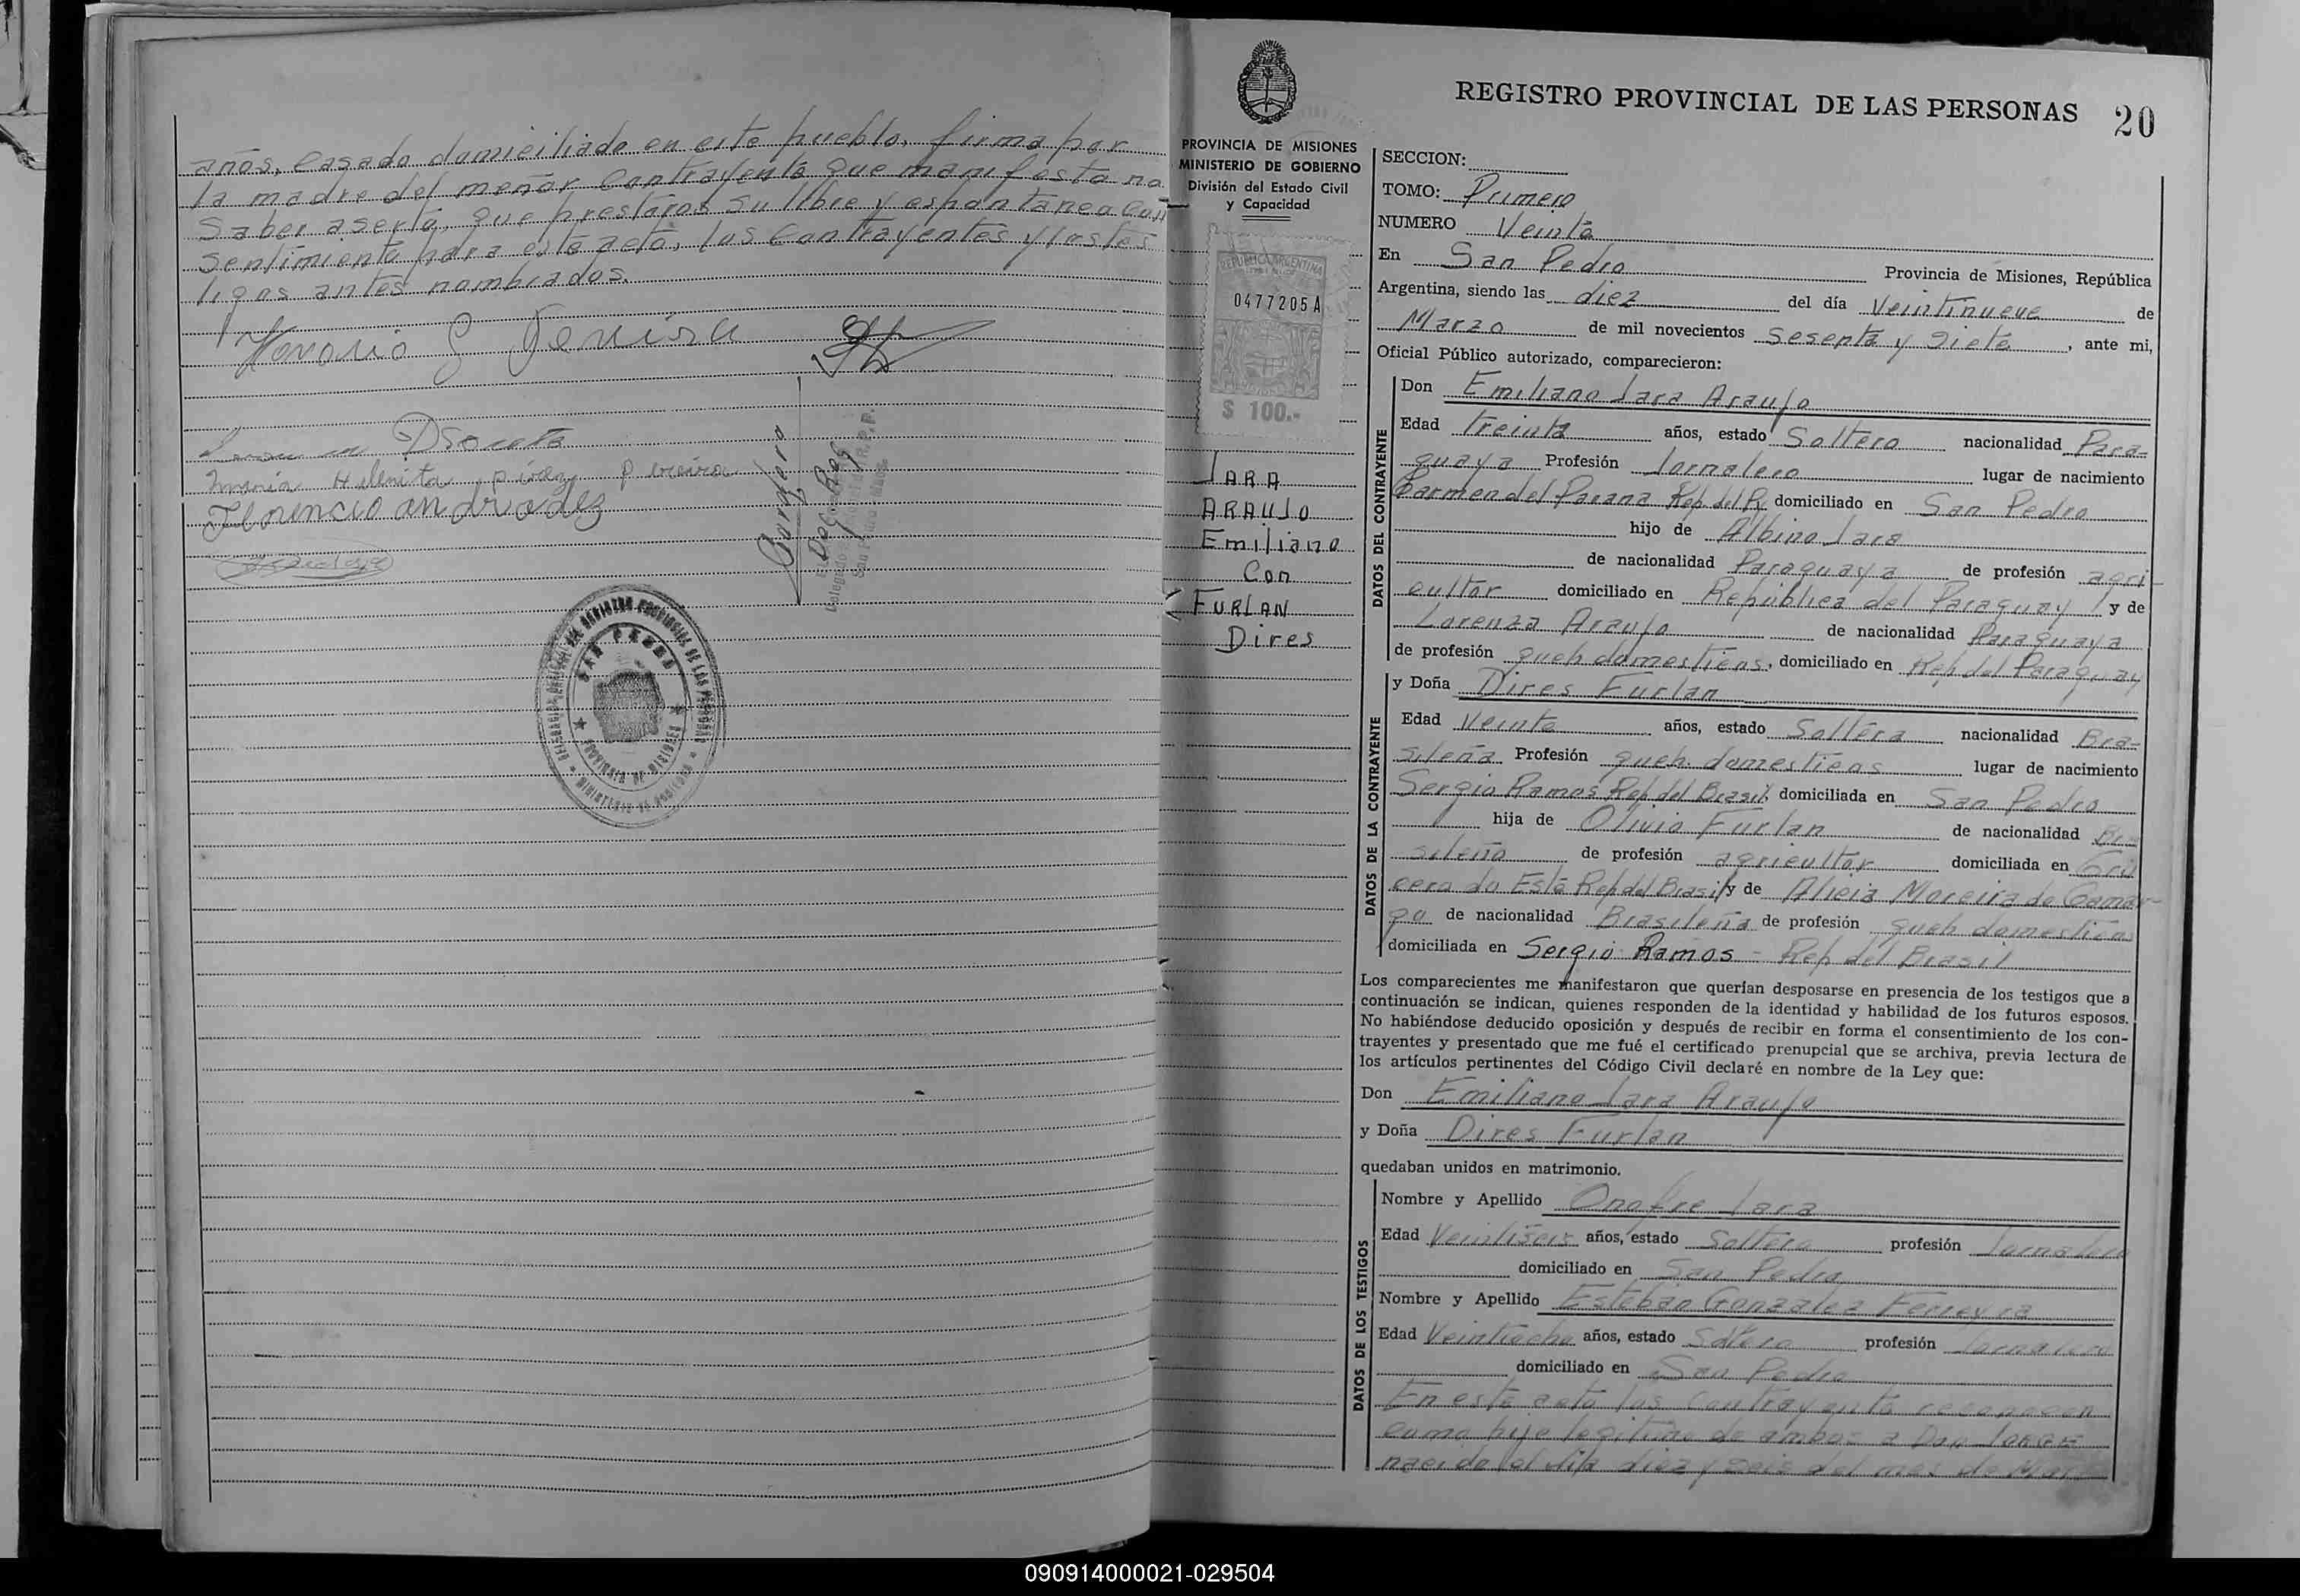 años, casado domiciliado en este pueblo, firma por
la madre del menor contrayente que manifesta no
saber aserlo, que prestaron su libre y espontaneo con
sentimiento para este acto, los contrayentes y los tes
tigos antes nombrados.
Horario
Maria Helenita
Florencio andradez
SAN PEDRO
PROVINCIA DE MISIONES
MINISTERIO DE GOBIERNO
PROVINCIA DE MISIONES
MINISTERIO DE GOBIERNO
División del Estado Civil
y Capacidad
REPUBLICA ARGENTINA
0477205A
$ 100.-
JARA
ARAUJO
Emiliano
Con
FURLAN
Dires
REGISTRO PROVINCIAL DE LAS PERSONAS 20
SECCION:
TOMO: Primero
NUMERO Veinte
En San Pedro Provincia de Misiones, República
Argentina, siendo las diez del día Veintinueve de
Marzo de mil novecientos sesenta y siete, ante mi,
Oficial Público autorizado, comparecieron:
DATOS DEL CONTRAYENTE
Don Emiliano Jara Araujo
Edad Treinta años, estado Soltero nacionalidad Para-
guaya Profesión Jornalero lugar de nacimiento
Carmen del Parana Rep. del Py. domiciliado en San Pedro
hijo de Albino Jara
de nacionalidad Paraguaya de profesión agri-
cultor domiciliado en República del Paraguay y de
Lorenza Araujo de nacionalidad Paraguaya
de profesión queh domesticos, domiciliado en Rep del Paraguay
DATOS DE LA CONTRAYENTE
y Doña Dires Furlan
Edad Veinte años, estado Soltera nacionalidad Bra-
sileña Profesión queh. domesticos lugar de nacimiento
Sergio Ramos Rep del Brasil, domiciliada en San Pedro
hija de Olivio Furlan de nacionalidad Bra
sileño de profesión agricultor domiciliada en
Rep del Brasil y de Alicia Moreira de Camar-
go de nacionalidad Brasileña de profesión queh domesticos
domiciliada en Sergio Ramos - Rep del Brasil
Los comparecientes me manifestaron que querían desposarse en presencia de los testigos que a
continuación se indican, quienes responden de la identidad y habilidad de los futuros esposos.
No habiéndose deducido oposición y después de recibir en forma el consentimiento de los con-
trayentes y presentado que me fué el certificado prenupcial que se archiva, previa lectura de
los artículos pertinentes del Código Civil declaré en nombre de la Ley que:
Don Emiliano Jara Araujo
y Doña Dires Furlan
quedaban unidos en matrimonio.
DATOS DE LOS TESTIGOS
Nombre y Apellido Onofre Jara
Edad Veintiseis años, estado Soltero profesión Jornalero
domiciliado en San Pedro
Nombre y Apellido Esteban Gonzalez Ferreyra
Edad Veintiocho años, estado Soltero profesión Jornalero
domiciliado en San Pedro
En este acto los contrayente reconocen
como hijo legitimo de ambos a Don JORGE
nacido el dia diez y seis del mes de
090914000021-029504